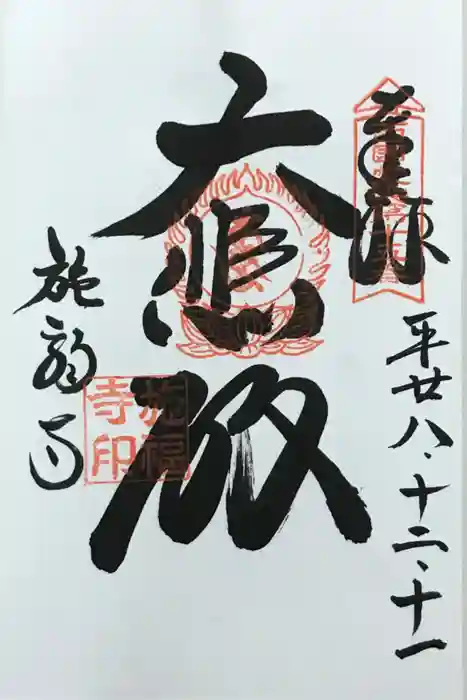 平廿八・十二・十一
大悲殿
施福寺
施福
寺印